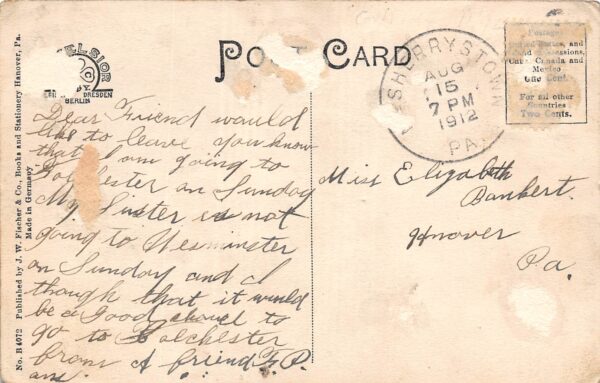 No. B 4072 Published by J. W. Fischer & Co., Books and Stationery Hanover, Pa.
Made in Germany
BERLIN
DRESDEN
POST CARD
SHERRYSTOWN
AUG
15
7 PM
1912
PA.
Postage
and
Cuba, Canada and
Mexico
One Cent.
For all other
Countries
Two Cents.
Dear Friend would
like to leave you know
that I am going to
on Sunday
My Sister is not
going to Wesminster
on Sunday and I
though that it would
be a good to
go to Colchester
from A friend F. P.
ans.
Miss Elizabeth
Danbert.
Hanover
Pa.